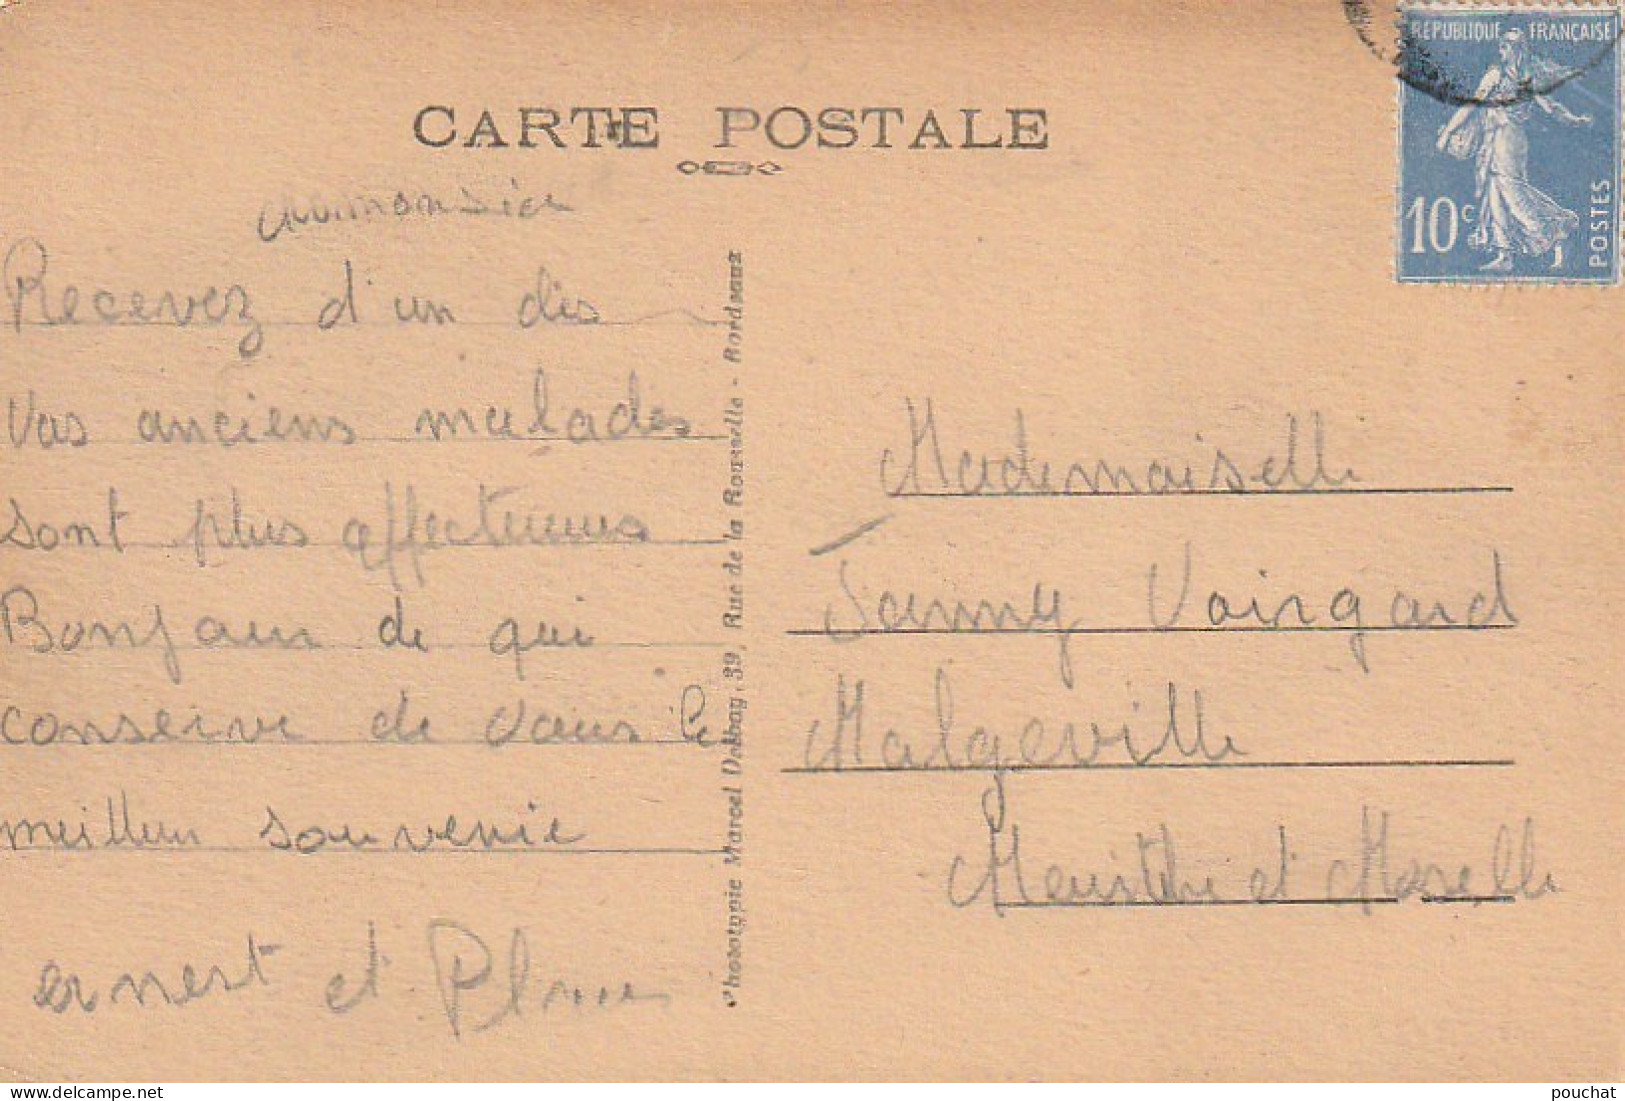 CARTE POSTALE
RÉPUBLIQUE FRANÇAISE
10c
POSTES
Recevez d'un des
Vos anciens malades
sont plus affectueux
Bonjour de qui
conserve de vous le
meilleur souvenir
ernest et
Phototypie Marcel Delboy, 39, Rue de la Rousselle - Bordeaux
Mademoiselle
Fanny Voirgard
Malgeville
Meurthe et Moselle
pouchat